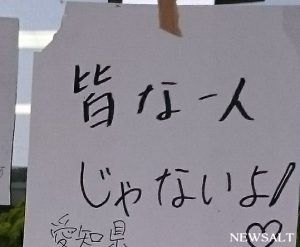 皆な一人
じゃないよ!
愛知県 ♡
NEWSALT